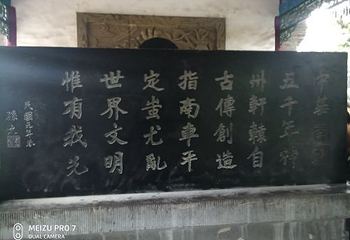 中華開國
五千年神
州軒轅自
古傳創造
指南車平
定蚩尤亂
世界文明
惟有我先
民國元年
孫文
MEIZU PRO 7
DUAL CAMERA